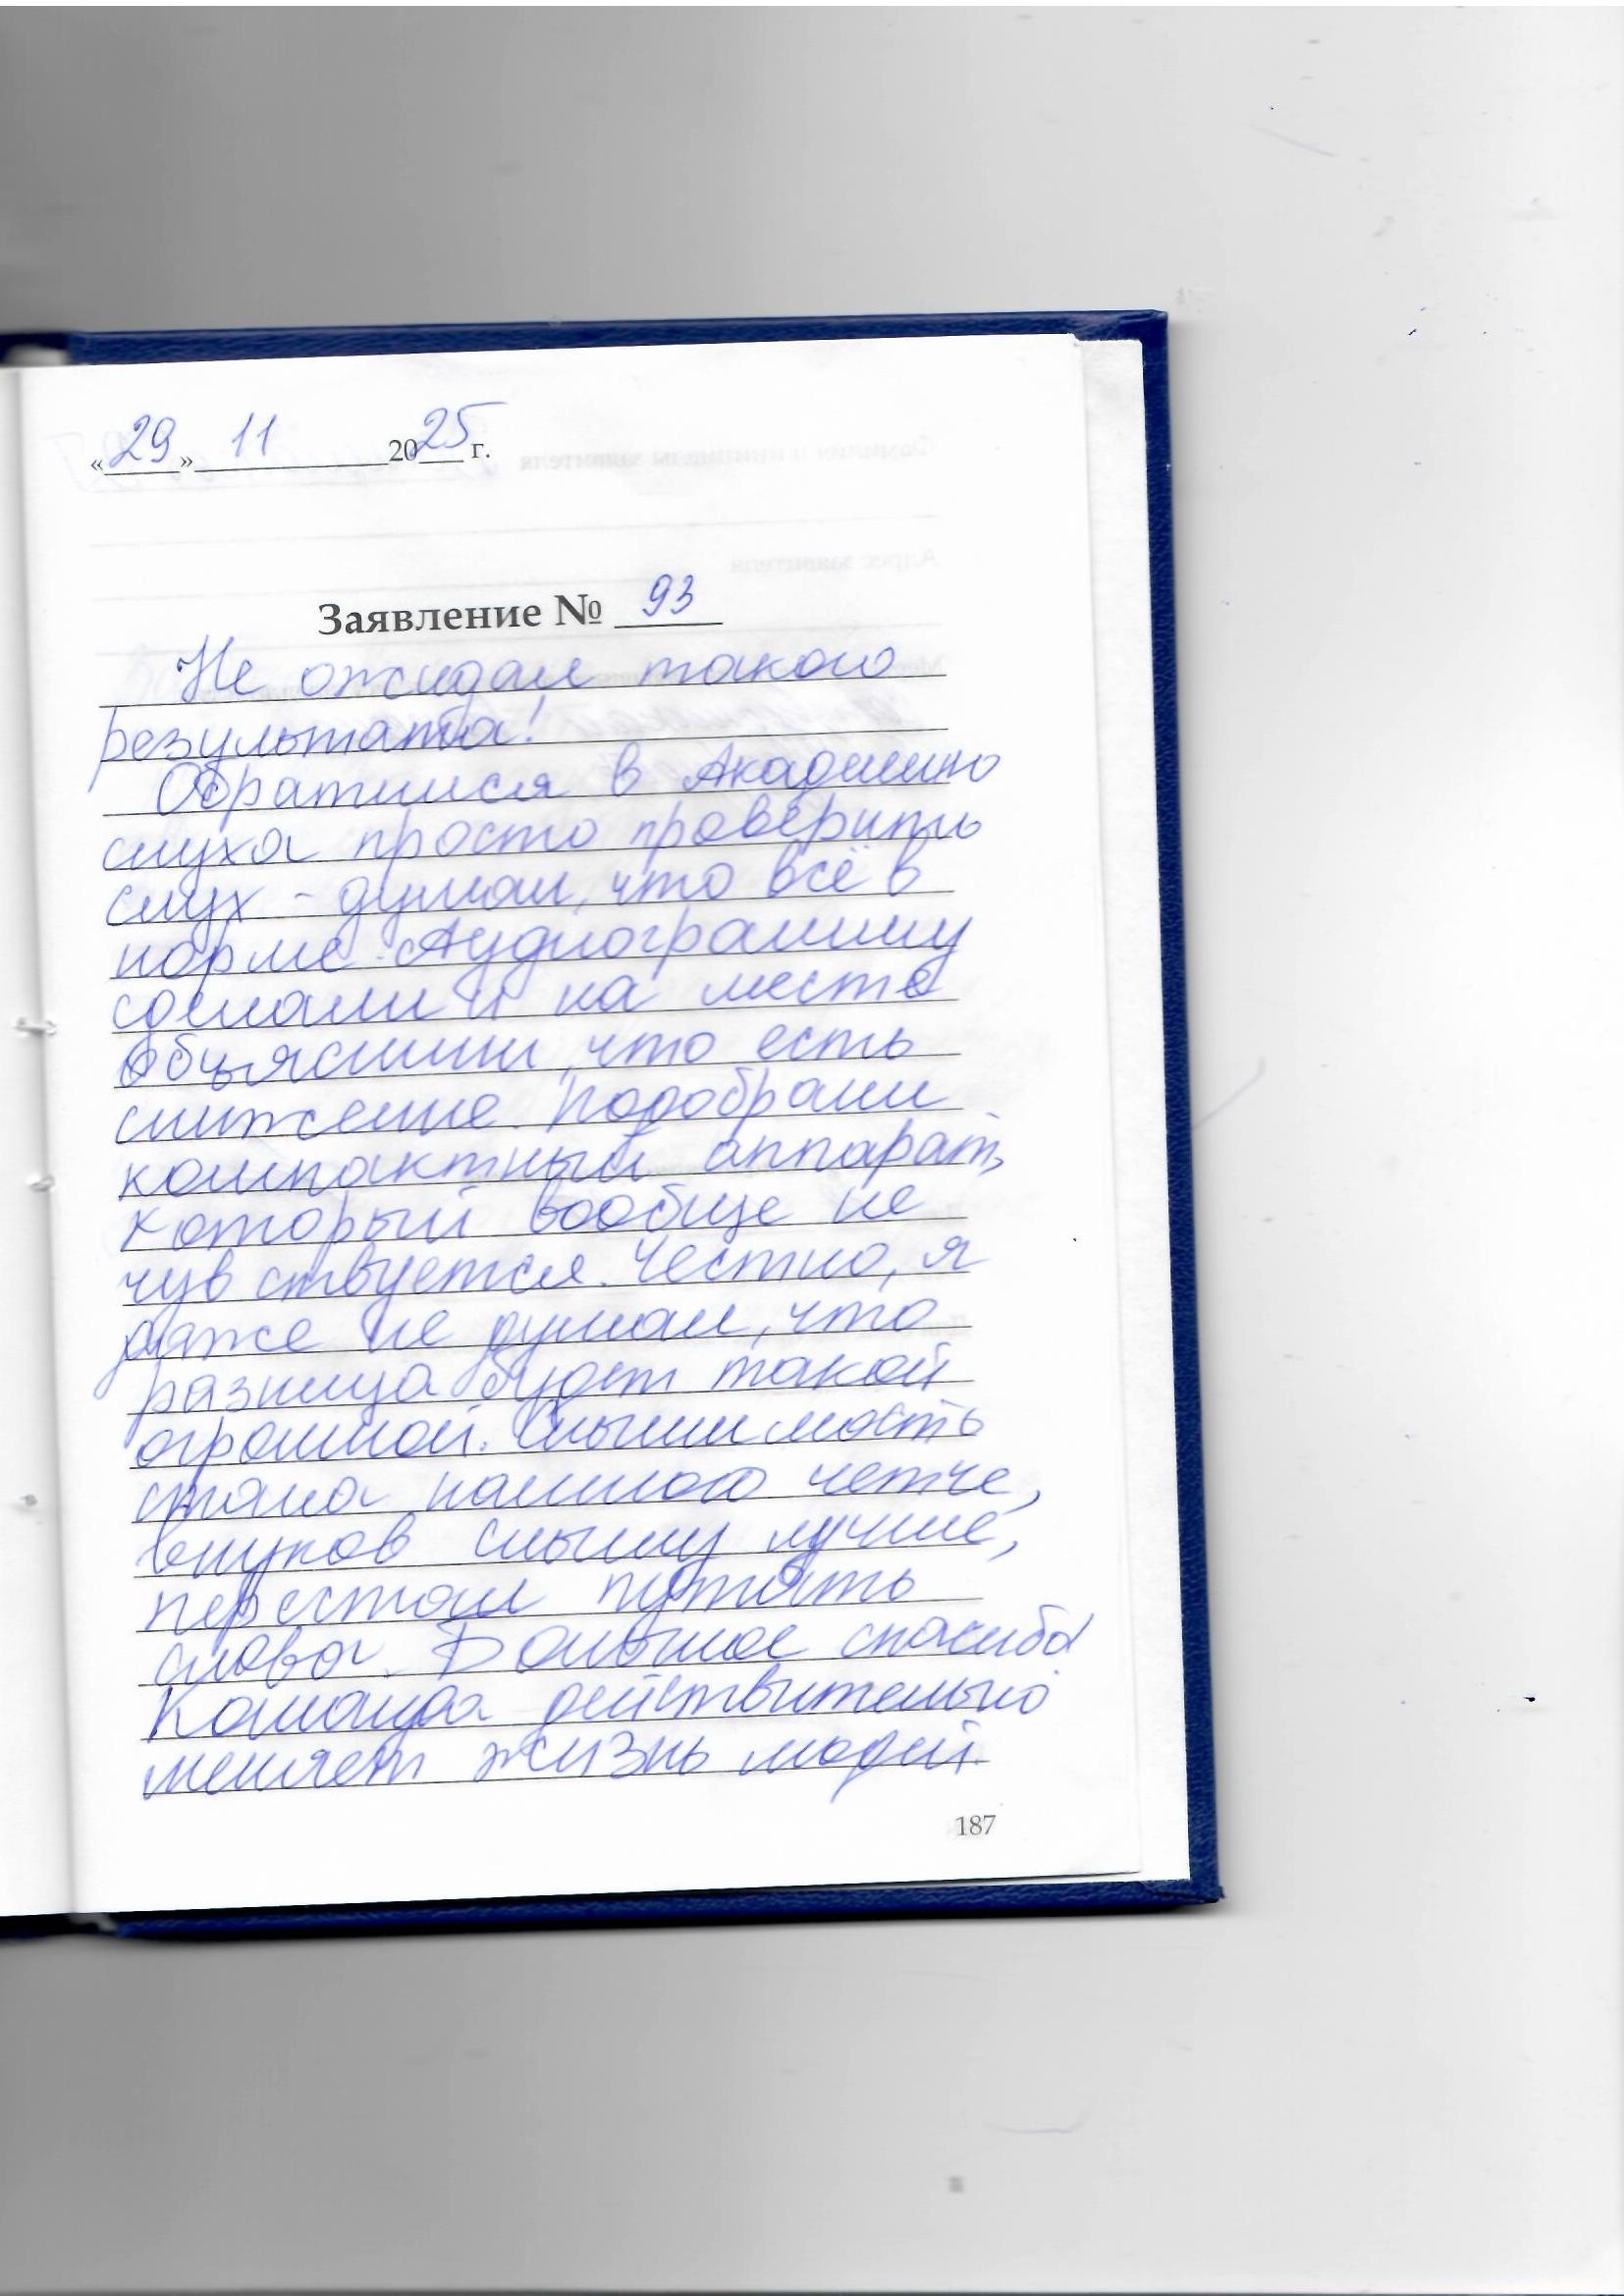 «29» 11 2025 г.
Заявление № 93
Не ожидал такого
результата!
Обратился в Академию
слуха просто проверить
слух - думал, что всё в
норме. Аудиограмму
сделали и на месте
объяснили, что есть
снижение. Подобрали
компактный аппарат,
который вообще не
чувствуется. Честно, я
даже не думал, что
разница будет такой
огромной. Слышимость
стала намного четче,
внуков слышу лучше,
перестал путать
слова. Большое спасибо
Команда действительно
меняет жизнь людей.
187